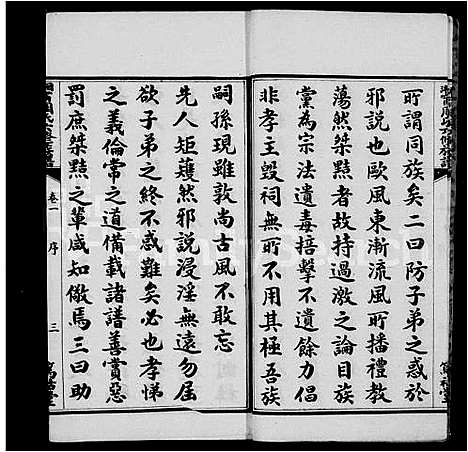 所謂同族矣二曰防子弟之惑於
邪説也歐風東漸流風所播禮教
蕩然桀黠者故持過激之論目族
黨為宗法遺毒掊擊不遺餘力倡
非孝主毀祠無所不用其極吾族
嗣孫現雖敦尚古風不敢忘
先人矩蒦然邪說浸淫無遠勿屆
欲子弟之終不惑難矣必也孝悌
之義倫常之道備載諸譜善賞惡
罰庶桀黠之輩咸知儆焉三曰助
卷一
序
三